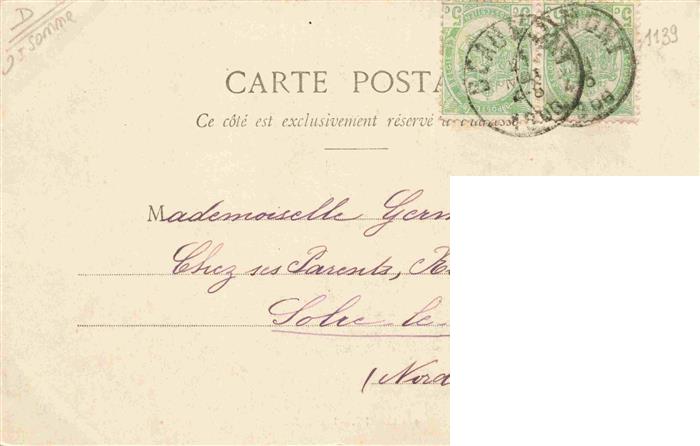 D
95 somme
1139
CARTE POSTA
Ce côté est exclusivement réservé à l'adresse
Mademoiselle Germ
Chez ses Parents, R
Solre-le
(Nord